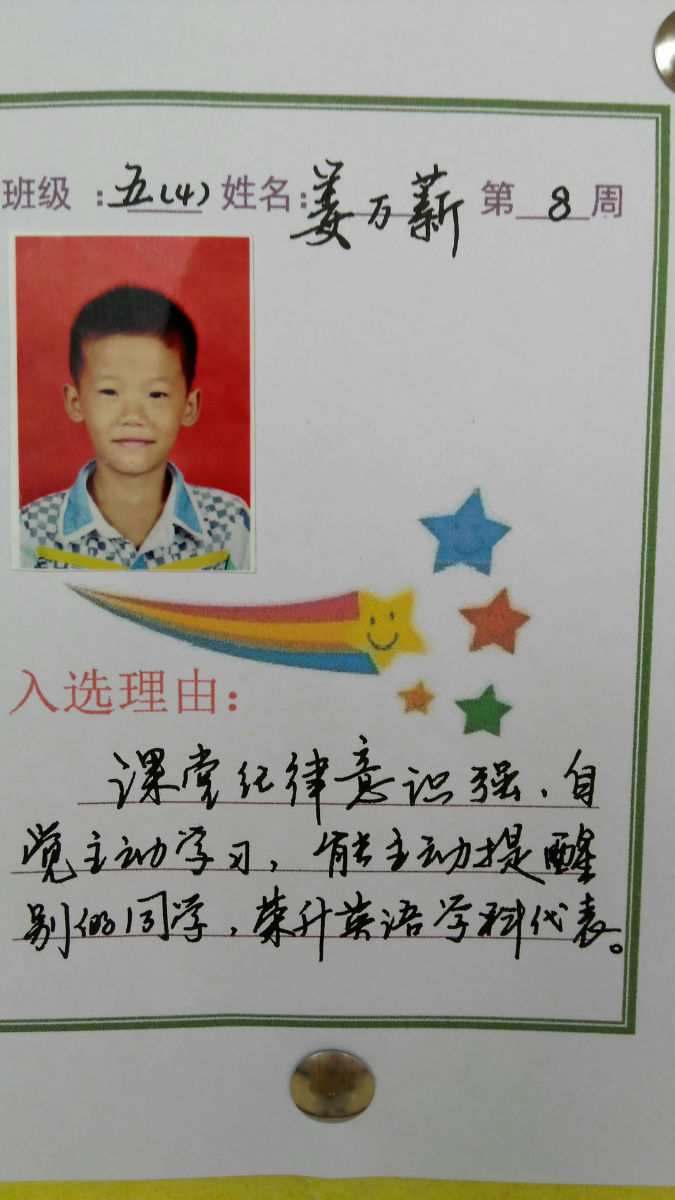 班级：五(4) 姓名：姜万薪 第8周
入选理由：
课堂纪律意识强、自
觉主动学习，能主动提醒
别的同学，荣升英语学科代表。